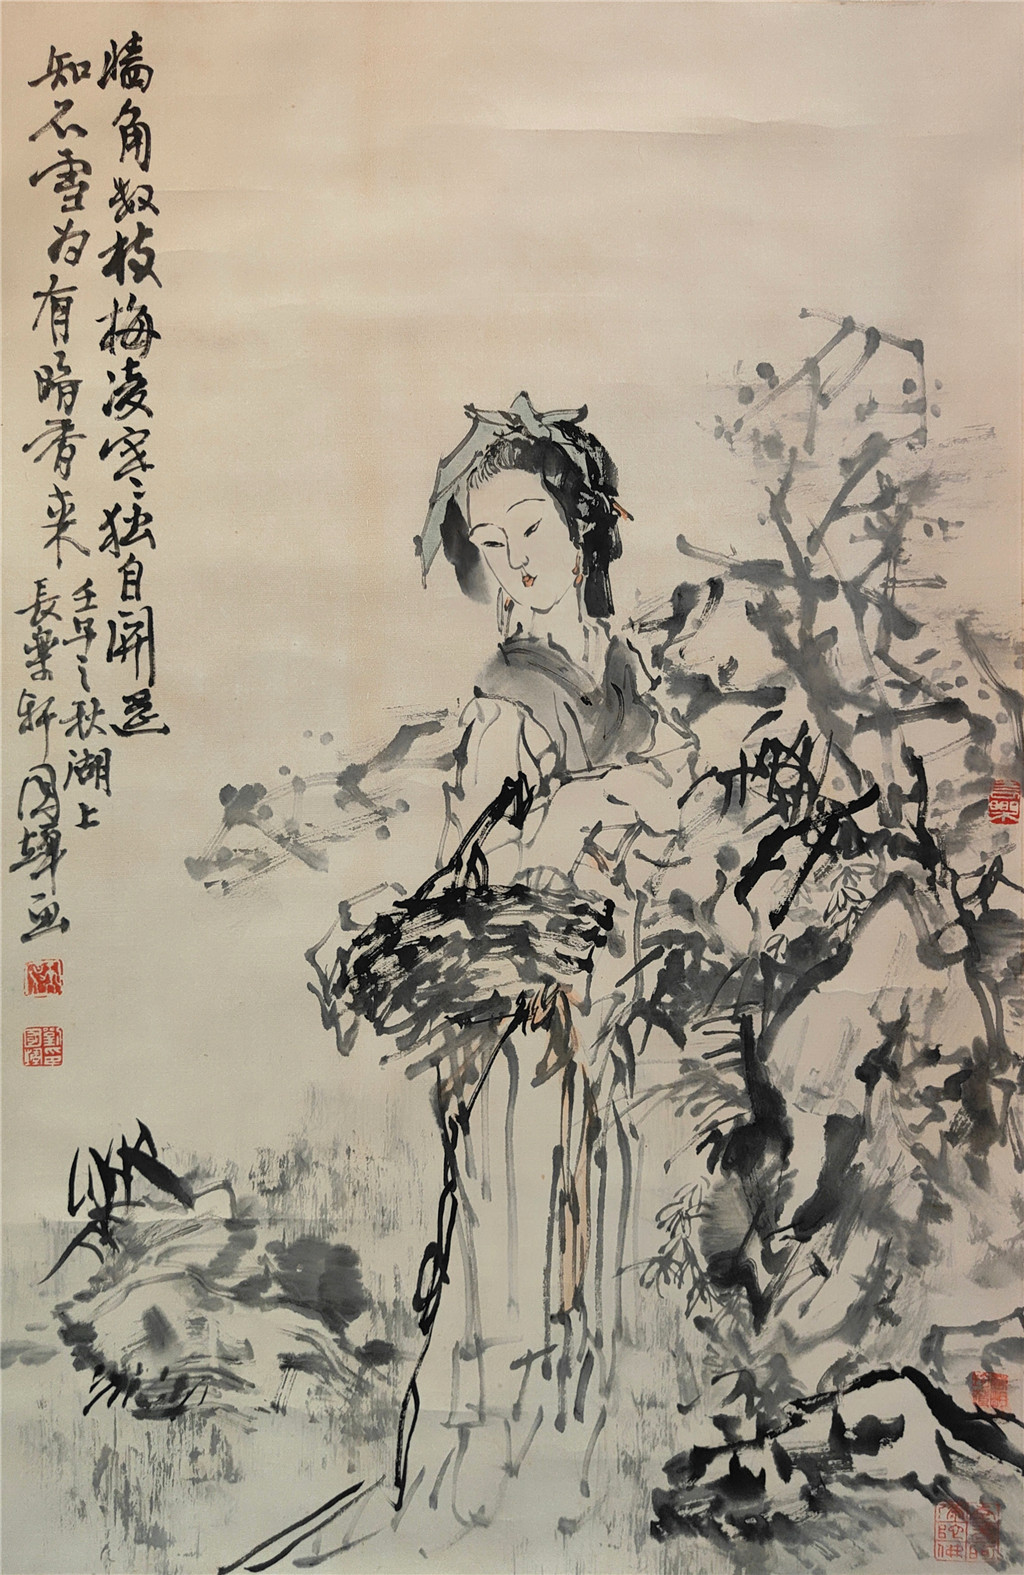 墙角数枝梅凌寒独自開遥
知不雪为有暗香来
壬午之秋湖上
長樂軒国輝画